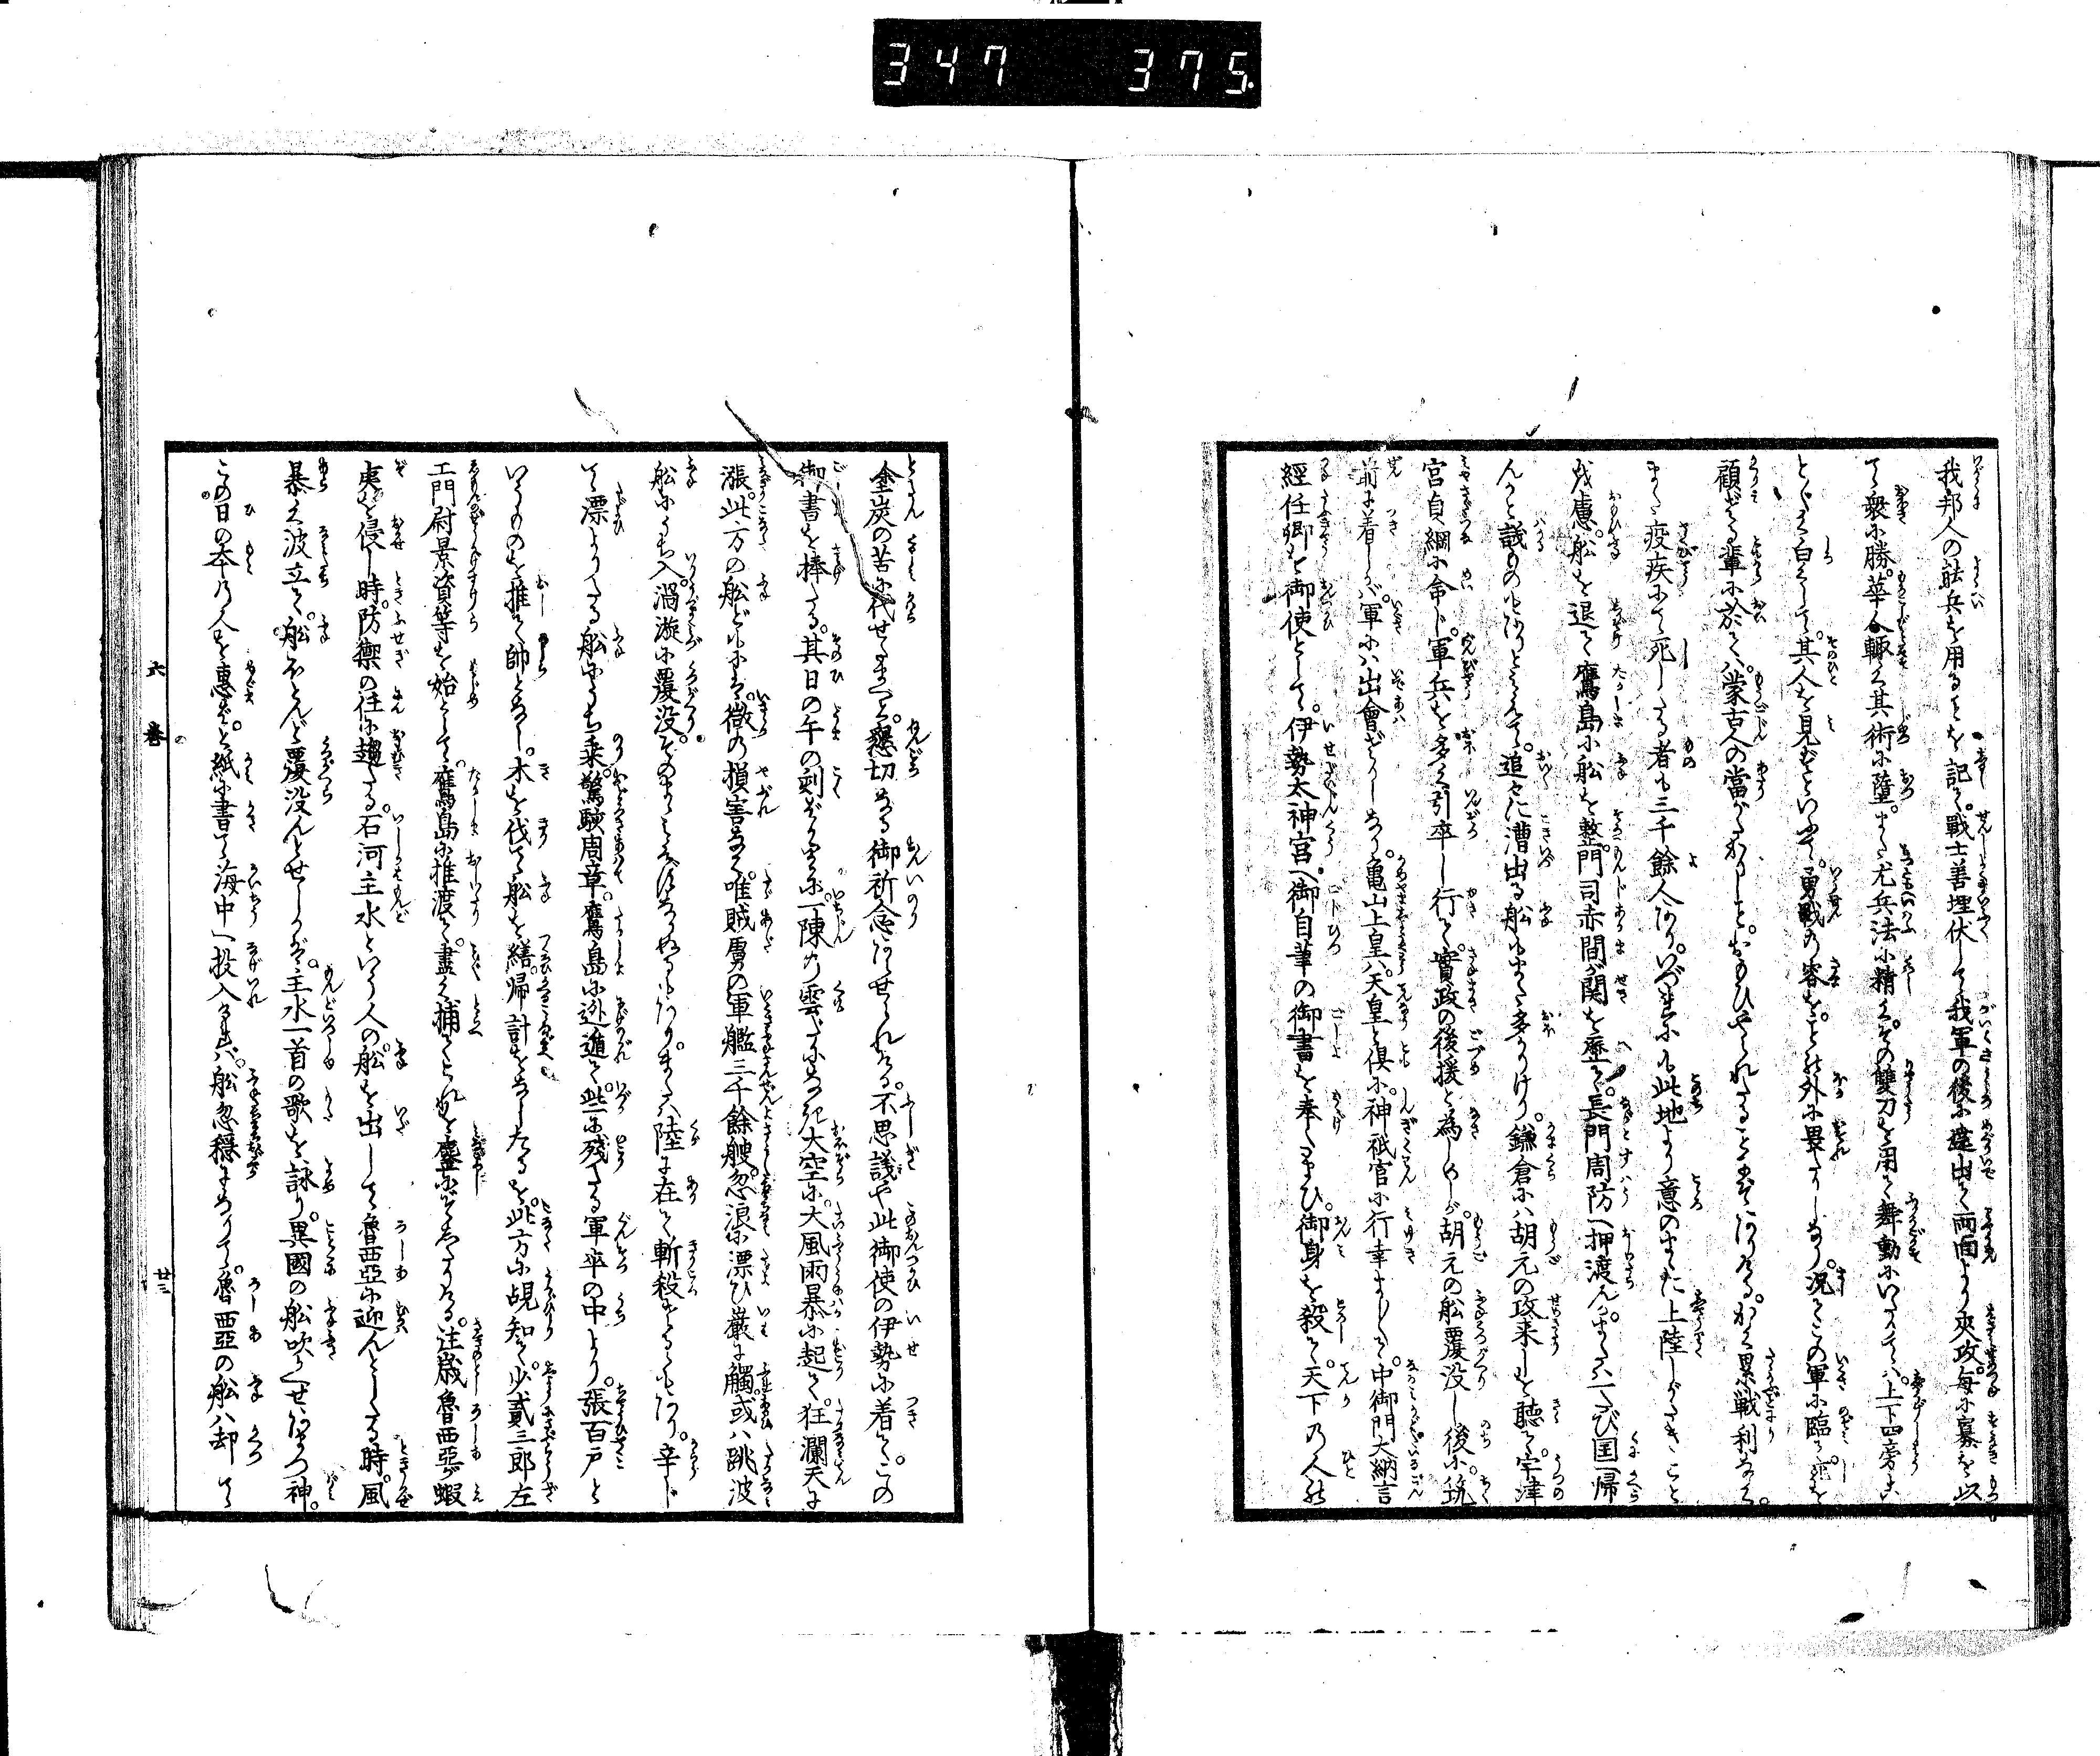 347 375
我邦人の詭兵を用ることを記て。戰士善埋伏して我軍の後に遶出て両面より夾攻。毎に寡を以
て衆に勝。華人輙く其術に墮。また尤兵法に精く。その雙刀を用て舞動にいたりては。上下四旁
とぐく白くして。其人を見ずといふて。勇戰の容を。ことの外に畏れしなり。况てこの軍に臨て
顧ざる輩に於てハ。蒙古人の當がたかりしと。おもひやられたることにぞありける。かく累戰利なく。
また疫疾にて死したる者も三千餘人あり。いづれにも此地より意のまゝに上陸しがたきこと
を慮。船を退て鷹島に船を整。門司赤間が関を歴て。長門周防へ押渡ん。または一たび国へ帰
んと議ものもありときこえて。追々に漕出る船もまた多かりけり。鎌倉にハ胡元の攻来しを聴て。宇津
宮貞綱に命じ。軍兵を多く引卒し行て。實政の後援と為しめしが。胡元の船覆没し後に。筑
前に着しが。軍にハ出會ざりしなり。亀山上皇ハ。天皇と倶に。神祇官に行幸まして。中御門大納言
經任卿を御使として。伊勢太神宮へ御自筆の御書を奉たまひ。御身を殺て。天下の人の
塗炭の苦に代せたまへと。懇切なる御祈念ありせられける。不思議や此御使の伊勢に着て。この
御書を捧たる。其日の午の刻ばかりに。一陳の雲だになき大空に。大風雨暴に起て。狂瀾天に
漲。此方の船どもには。徴の損害なく。唯賊虜の軍艦三千餘艘。忽浪に漂ひ巌に觸。或ハ跳波
船にうち入。渦漩に覆没。そのまゝ
て漂よりたる船にうち乗。驚駭周章。鷹島に迯遁て。些に殘たる軍卒の中より。張百戸と
いふものを推て帥となし。木を伐て船を繕。帰計をなしたるを。此方に覘知て。少貳三郎左
エ門尉景資等を始として。鷹島に推渡て。盡く捕てこれを鏖にぞしたりける。往歳魯西亞が蝦
夷を侵し時。防禦の任に趣たる。石河主水といふ人の。船を出して魯西亞に迎んとしたる時。風
暴く波立て。船ほとんど覆没んとせしかば。主水一首の歌を詠り。異國の船吹かへせ。伊勢の神。
この日の本の人を惠ば。と紙に書て海中へ投入ければ。船忽穏になりて。魯西亞の船ハ却て
六 巻 廿三